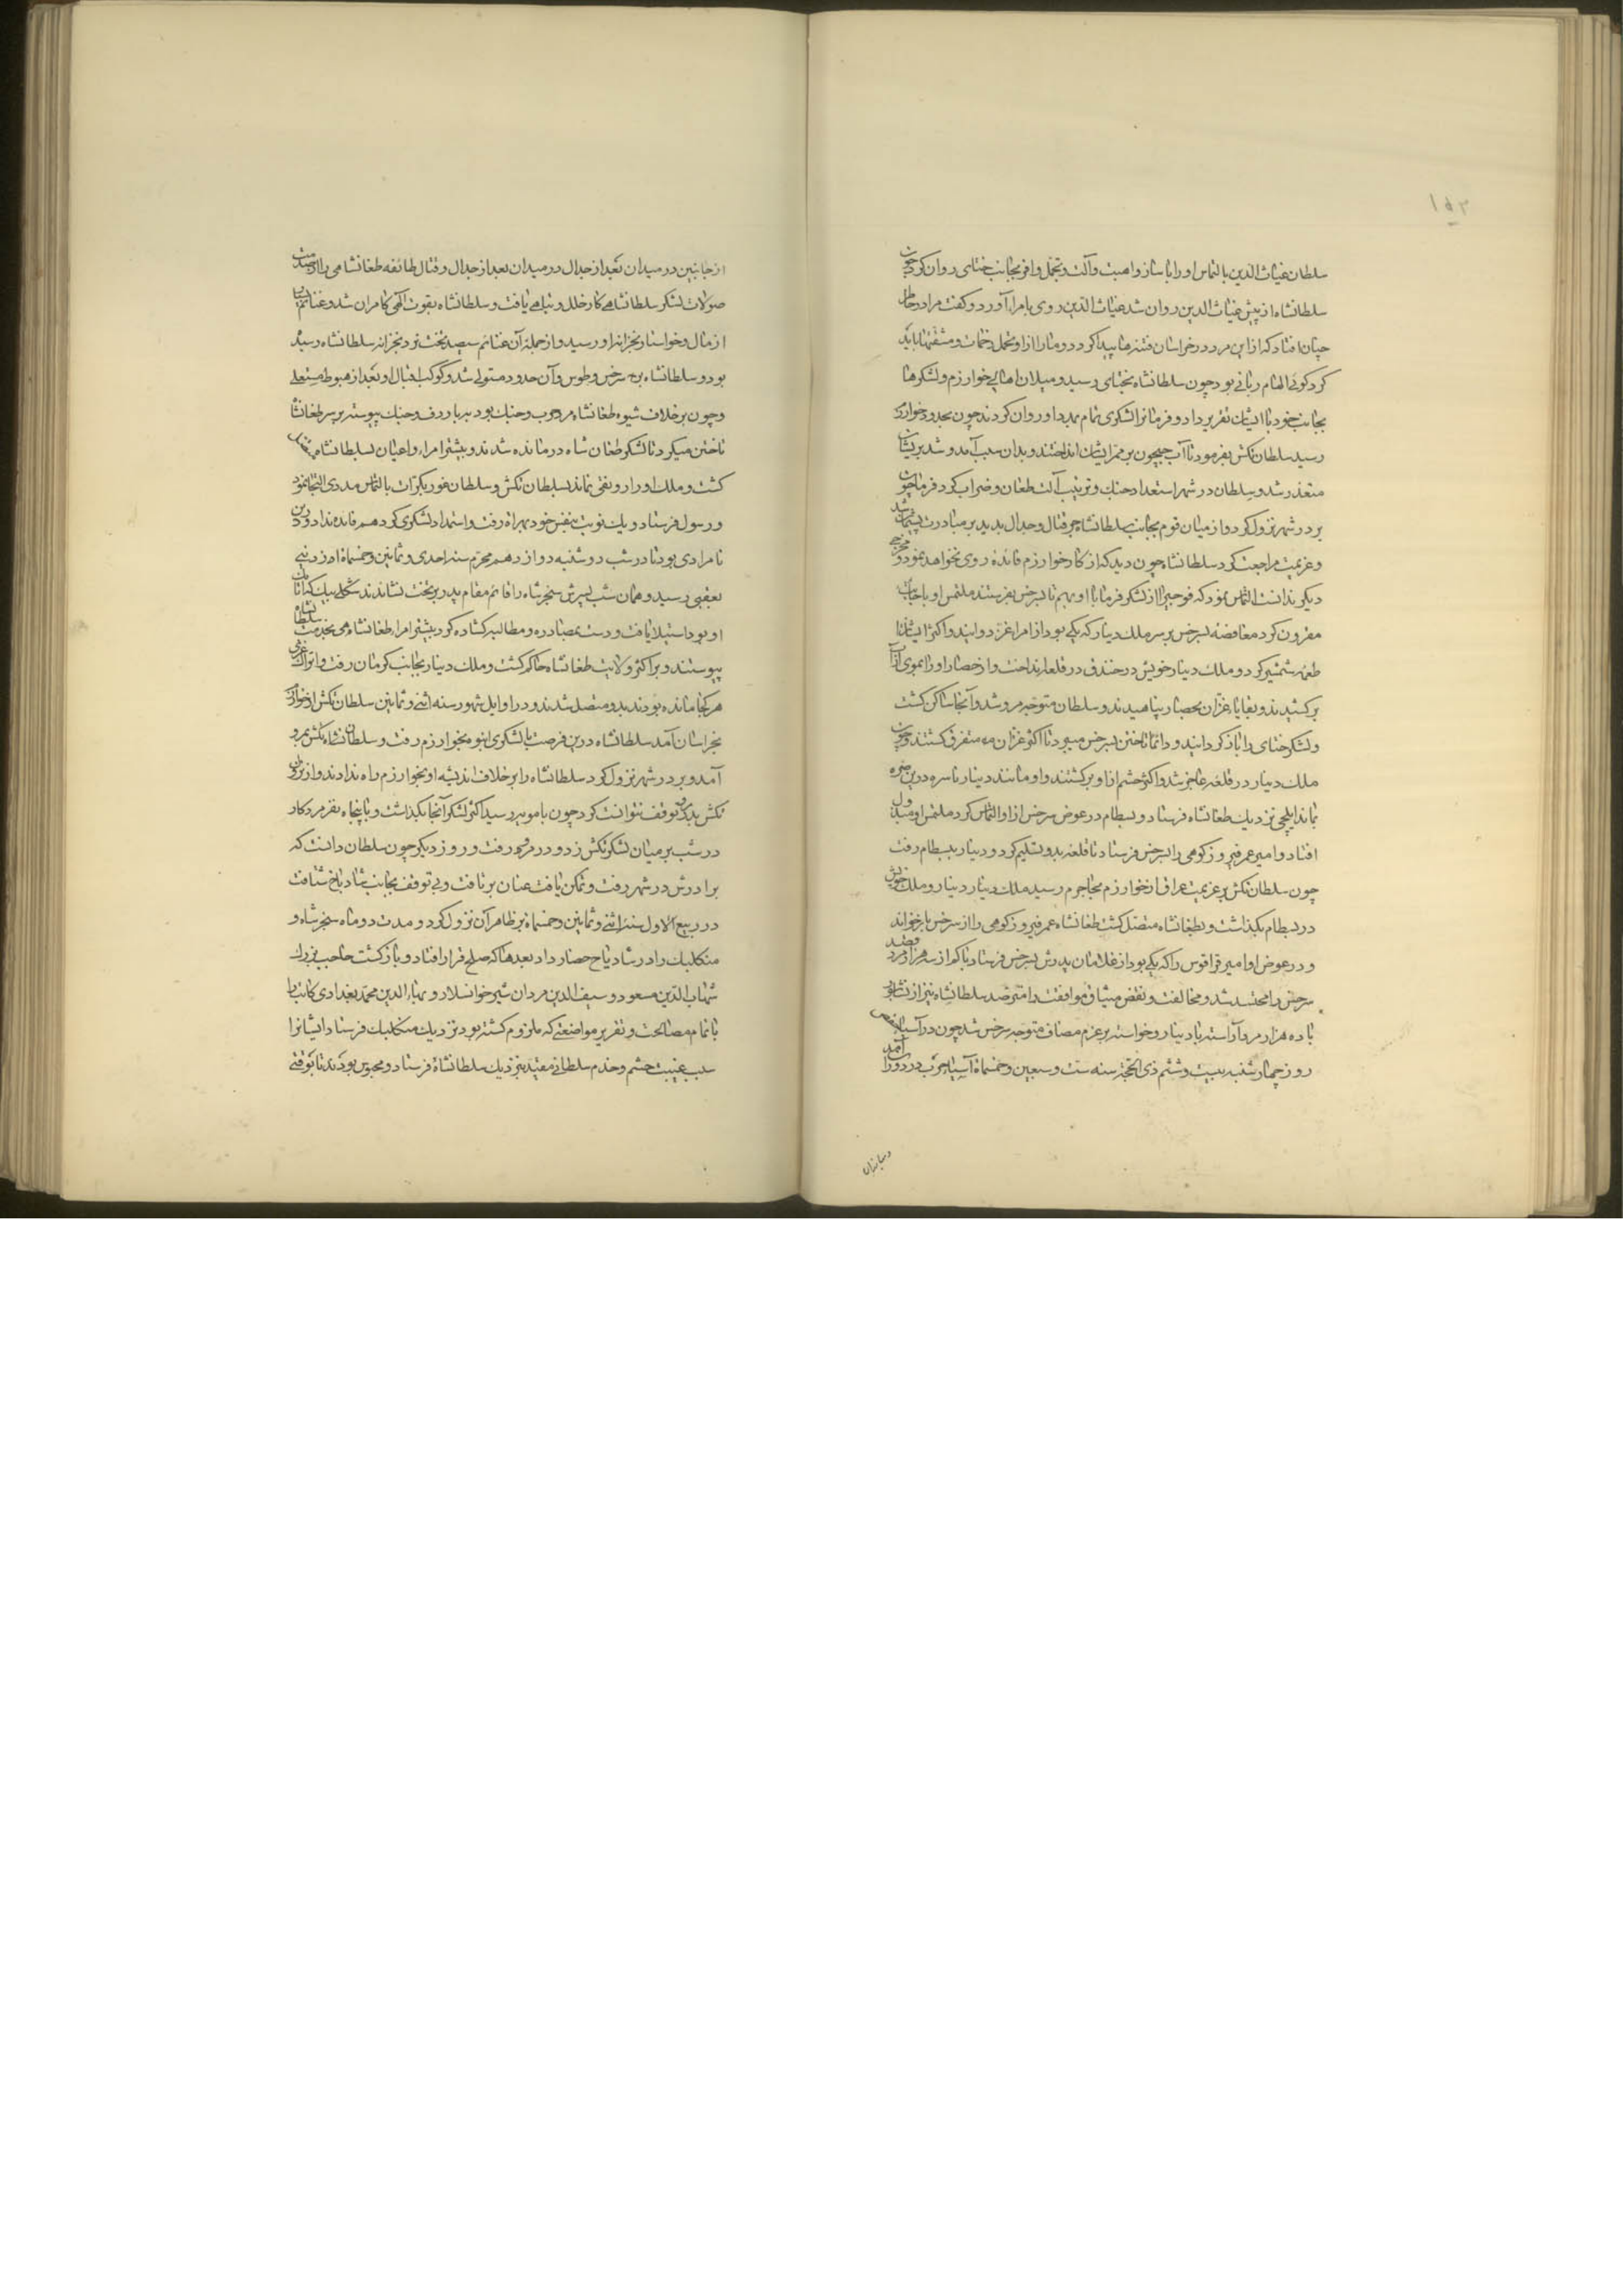 ۱۵۳
سلطان غیاث الدین بالتماس او را با ساز و اهبت و آلت و تجمل وافر بجانب ختای روان کرد چون
سلطانشاه از پیش غیاث الدین روان شد غیاث الدین روی بامرا آورد و گفت مرا در خاطر
چنان افتاد که از این مرد در خراسان فتنه‌ها پیدا کردد و ما را از او تحمل زحمات و مشقتها باید
کرد کوئی الهام ربانی بود چون سلطانشاه بختای رسید و میلان اهالی خوارزم و لشکرها
بجانب خود با ایشان تقریر داد و فرما را با لشکری تمام بمدد او روان کردند چون بحدود خوارزم
رسید سلطان تکش بفرمود تا آب جیحون بر ممر ایشان انداختند و بدان سبب آمد و شد بریشان
متعذر شد و سلطان در شهر استعداد جنک و ترتیب آلت طعان و ضراب کرد فرما چون
بر در شهر نزول کرد و از میان قوم بجانب سلطانشاه جز قتال و جدال ندید بر مبادرت پشیمان شد
و عزیمت مراجعت کرد سلطانشاه چون دید که از کار خوارزم فائده روی نخواهد نمود و مخرجی
دیگر ندانست التماس نمود که فوجی را از لشکر فرما با او بهم تا سرخس بفرستند ملتمس او باجابت
مقرون کرد مغافصة بسرخس بر سر ملک دینار که یکی بود از امراء غز دوانید و اکثر ایشان را
طعمه شمشیر کرد و ملک دینار خویش در خندق در قلعه انداخت و از حصار او را بموی از آب
برکشیدند و بقایاء غزان بحصار پناهیدند و سلطان متوجه مرو شد و آنجا ساکن کشت
و لشکر ختای را باز کردانید و دائما تاختن بسرخس میبرد تا اکثر غزان متفرق کشتند و چون
ملک دینار در قلعه عاجز شد و اکثر حشم از او برکشتند و او مانند دینار ناسره در بن صره
بماند ایلچی نزدیک طغانشاه فرستاد و بسطام در عوض سرخس از او التماس کرد ملتمس او مبذول
افتاد و امیر عمر فیروزکوهی را بسرخس فرستاد تا قلعه بدو تسلیم کرد و دینار ببسطام رفت
چون سلطان تکش بر عزیمت عراق از خوارزم بجاجرم رسید ملک دینار دینار و ملک خویش
در بسطام بکذاشت و بطغانشاه متصل کشت طغانشاه عمر فیروزکوهی را از سرخس باز خواند
و در عوض او امیر قراقوش را که یکی بود از غلامان پدرش بسرخس فرستاد با کم از سه هزار مرد قصد
سرخس را محتشد شد و مخالفت و نقض میثاق موافقت را مترصد سلطانشاه نیز از نشابور
با ده هزار مرد آراسته با دینار و خواسته بر عزم مصاف متوجه سرخس شد چون در آسیاء حفص
روز چهارشنبه بیست و ششم ذی الحجة سنه ست و سبعین و خمسمأة آسیاء حرب در دوران آمد
و مبارزان
از جانبین در میدان بعد از جدال در میدان بعد از جدال و قتال طائفه طغانشاهی را از صدمت
صولات لشکر سلطانشاهی کار خلل و تباهی یافت و سلطانشاه بقوت الهی کامران شد و غنائم بسیار
از مال و خواسته بخزانه او رسید و از جمله آن غنائم سیصد تخت نرد بخزانه سلطانشاه رسیده
بود و سلطانشاه بر سرخس و طوس و آن حدود مستولی شد و کوکب اقبال او بعد از هبوط مستعلی
و چون بر خلاف شیوه طغانشاه مرد حرب و جنک بود نه یار دف و چنک پیوسته بر سر طغانشاه
تاختن میکرد تا لشکر طغان شاه درمانده شدند و بیشتر امراء و اعیان بسلطانشاه متصل
کشت و ملک او را رونقی نماند بسلطان تکش و سلطان غور بکرات بالتماس مددی التجا نمود
و رسول فرستاد و یک نوبت بنفس خود بهراة رفت و استمداد لشکری کرد هم فائده نداد و درین
نامرادی بود تا در شب دوشنبه دوازدهم محرم سنه احدی و ثمانین و خمسمأة از دنیی
بعقبی رسید و همان شب پسرش سنجرشاه را قائم مقام پدر بر تخت نشاندند منکلی بیک که اتابک
او بود استیلا یافت و دست بمصادره و مطالبه کشاده کرد بیشتر امراء طغانشاهی بخدمت سلطانشاه
پیوستند و بر اکثر ولایت طغانشاه حاکم کشت و ملک دینار بجانب کرمان رفت و اتراک غزی
هر کجا مانده بودند بدو متصل شدند و در اوایل شهور سنه اثنی و ثمانین سلطان تکش از خوارزم
بخراسان آمد سلطانشاه درین فرصت با لشکری انبوه بخوارزم رفت و سلطان تکش بمرو
آمد و بر در شهر نزول کرد سلطانشاه را بر خلاف اندیشه او بخوارزم راه ندادند و از نزول
تکش بدر مرو توقف نتوانست کرد چون بامویه رسید اکثر لشکر آنجا بکذاشت و با پنجاه نفر مرد کار
در شب بر میان لشکر تکش زد و در مرو رفت و روز دیکر چون سلطان دانست که
برادرش در شهر رفت و تمکن یافت عنان برتافت و بی توقف بجانب شادیاخ شتافت
در ربیع الاول سنه اثنی و ثمانین و خمسمأة بر ظاهر آن نزول کرد و مدت دو ماه سنجرشاه و
منکلبک را در شادیاخ حصار داد بعدها که صلح قرار افتاد و بازکشت حاجب بزرک
شهاب الدین مسعود و سیف الدین مردان شیر خوانسلار و بهاء الدین محمد بغدادی کاتب را
باتمام مصالحت و تقریر مواضعتی که ملزوم کشته بود نزدیک منکلبک فرستاد ایشانرا
سبب غیبت حشم و خدم سلطانی مقید نزدیک سلطانشاه فرستاد و محبوس بودند تا بوقتی